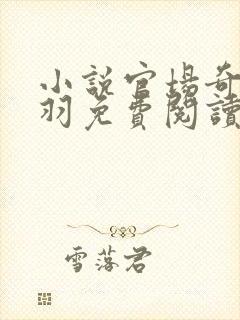 小說官場奇
羽免費閱讀
雪落君